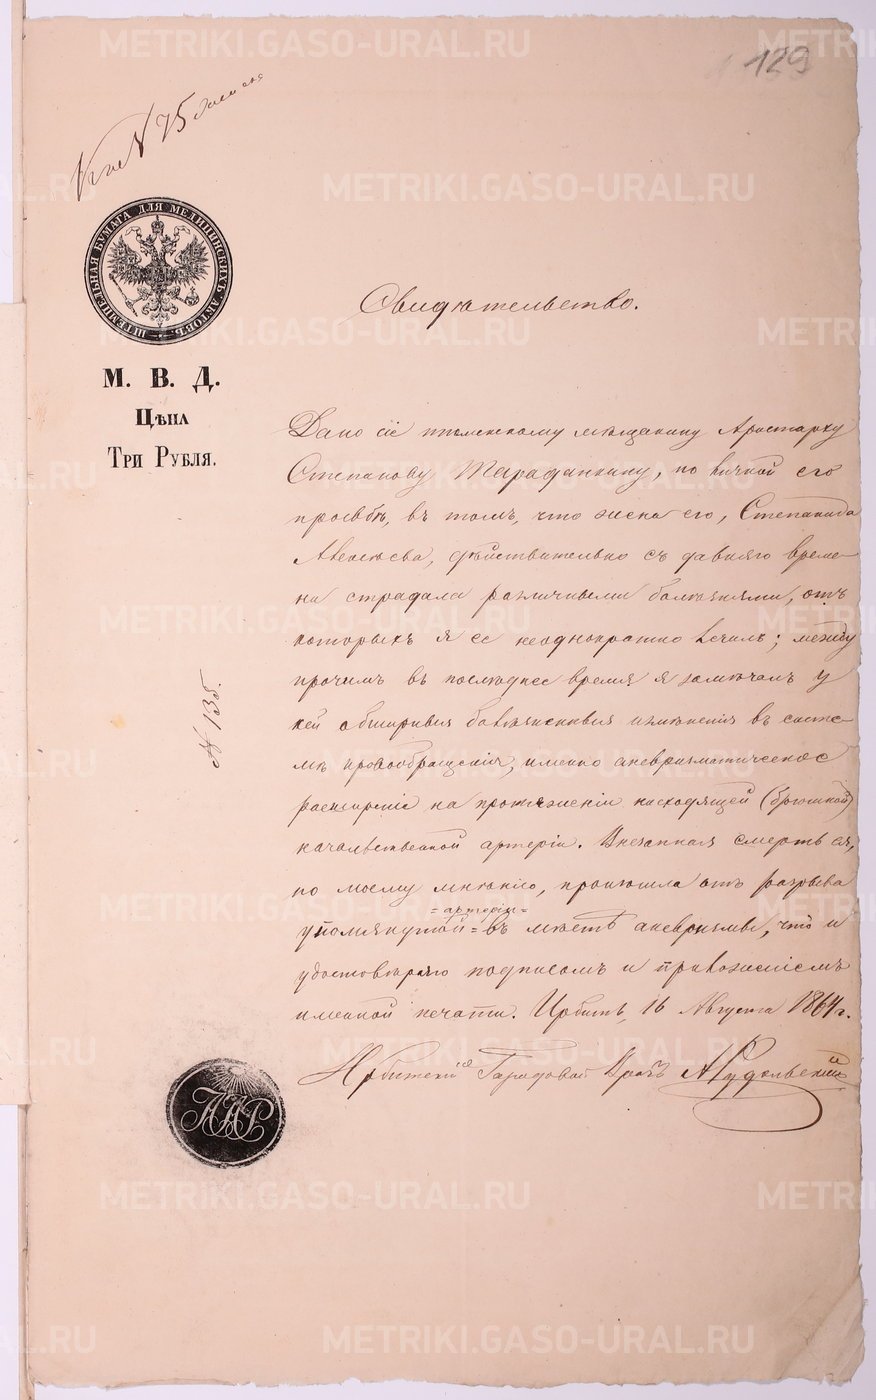 129
№ 75
ШТЕМПЕЛЬНАЯ БУМАГА ДЛЯ МЕДИЦИНСКИХЪ АКТОВЪ
М. В. Д.
Цѣна
Три Рубля.
Свидѣтельство.
Дано сіе тюменскому мѣщанину Аристарху
Степанову Тараданкину, по личной его
просьбѣ, въ томъ, что жена его, Степанида
Алексѣева, дѣйствительно съ давняго време-
ни страдала различными болѣзнями, отъ
которыхъ я ее неоднократно лечилъ; между
прочимъ въ послѣднее время я замѣчалъ у
ней обширныя болѣзненныя измѣненія въ систе-
мѣ кровообращенія, именно аневризматическое
расширеніе на протяженіи нисходящей (брюшной)
начальственной артеріи. Внезапная смерть ея,
по моему мнѣнію, произошла отъ разрыва
=артеріи=
упомянутой = въ мѣстѣ аневризмы, что и
удостовѣряю подписомъ и приложеніемъ
именной печати. Ирбить, 16 Августа 1864 г.
Ирбитскій Городовой Врачъ А Рудольскій
№ 135.
METRIKI.GASO-URAL.RU